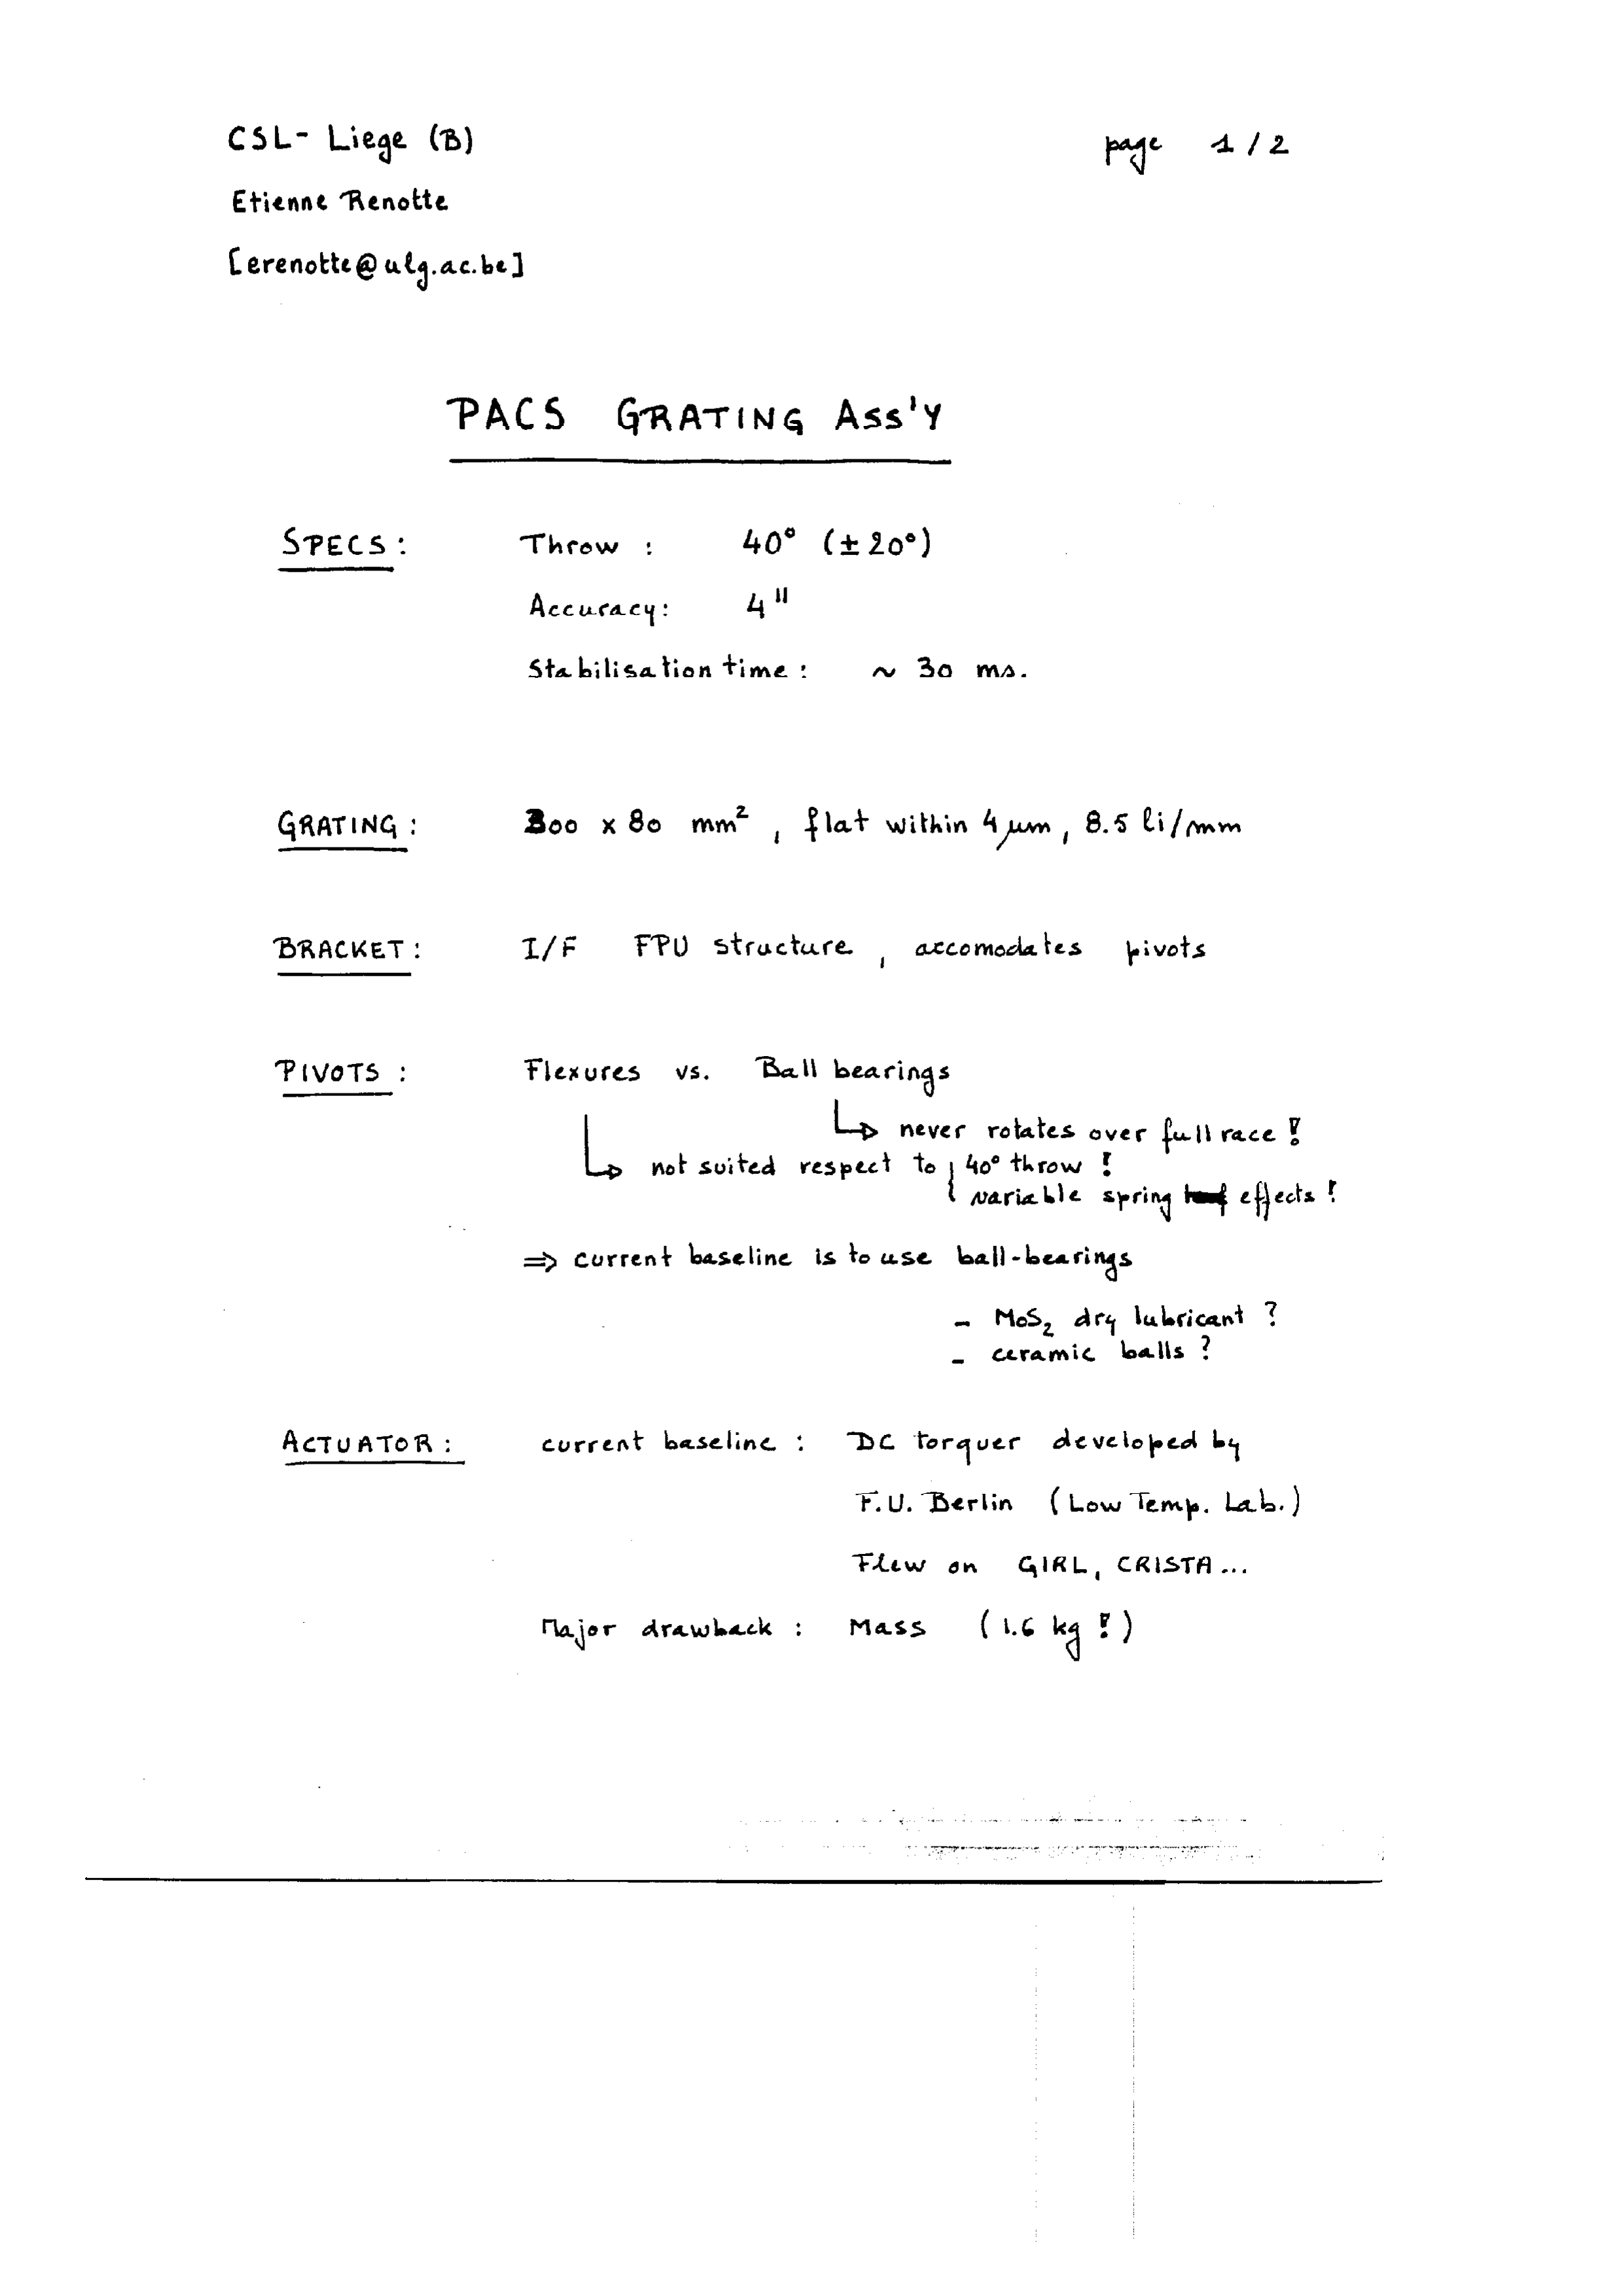 CSL- Liege (B) page 1/2
Etienne Renotte
[erenotte@ulg.ac.be]
PACS GRATING ASS'Y
SPECS: Throw : 40° (±20°)
Accuracy: 4"
Stabilisation time: ~ 30 ms.
GRATING: 300 x 80 mm², flat within 4 µm, 8.5 li/mm
BRACKET: I/F FPU structure, accomodates pivots
PIVOTS : Flexures vs. Ball bearings
↳ never rotates over full race !
↳ not suited respect to { 40° throw !
variable spring effects !
⇒ current baseline is to use ball-bearings
- MoS₂ dry lubricant ?
- ceramic balls ?
ACTUATOR: current baseline : DC torquer developed by
F.U. Berlin (Low Temp. Lab.)
Flew on GIRL, CRISTA...
Major drawback : Mass (1.6 kg !)